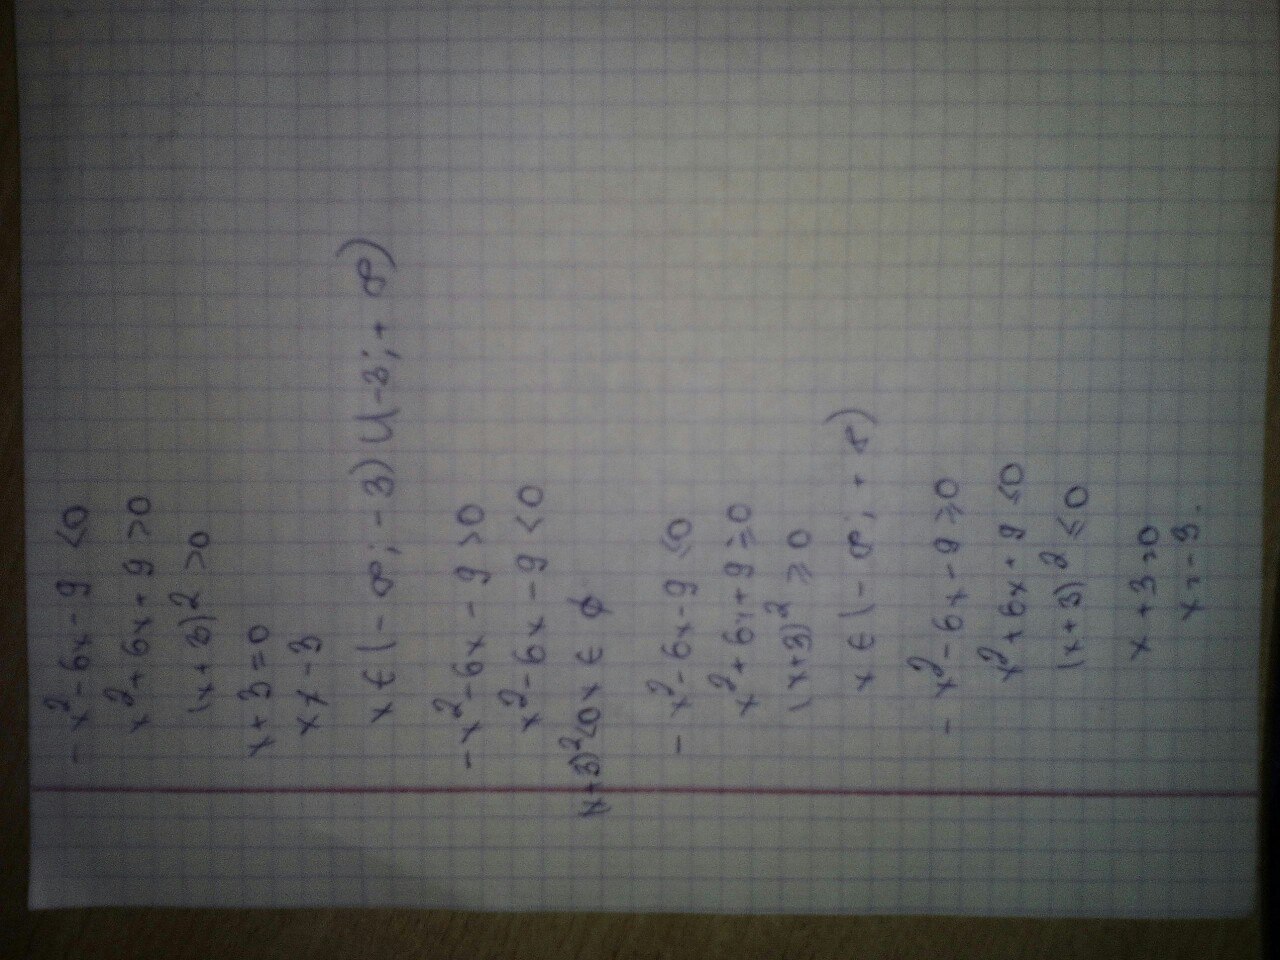 - x² - 6x - 9 < 0
x² + 6x + 9 > 0
(x + 3)² > 0
x + 3 = 0
x ≠ - 3
x ∈ (- ∞; - 3) U (-3; + ∞)
- x² - 6x - 9 > 0
x² - 6x - 9 < 0
(x+3)² < 0 x ∈ ϕ
- x² - 6x - 9 ≤ 0
x² + 6x + 9 ≥ 0
(x+3)² ≥ 0
x ∈ (- ∞; + ∞)
- x² - 6x - 9 ≥ 0
x² + 6x + 9 ≤ 0
(x+3)² ≤ 0
x + 3 = 0
x = - 3.